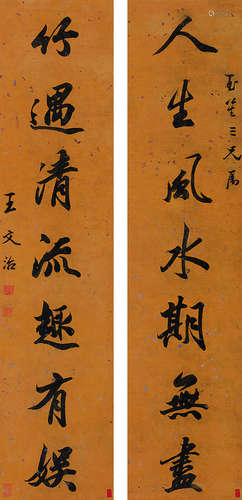 人生風水期無盡
玉笙三兄屬
竹遇清流趣有娛
王文治